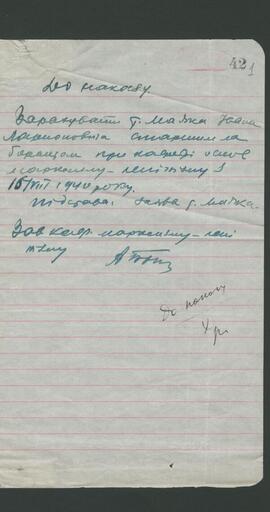 421
До наказу.
Зарахувати т. Маяка Івана
старшим ла
борантом при кафедрі основ
марксизму-ленінізму з
1940 року.
Підстава: заява т. Маяка.
Зав кафедр. марксизму-лені
нізму
До наказу